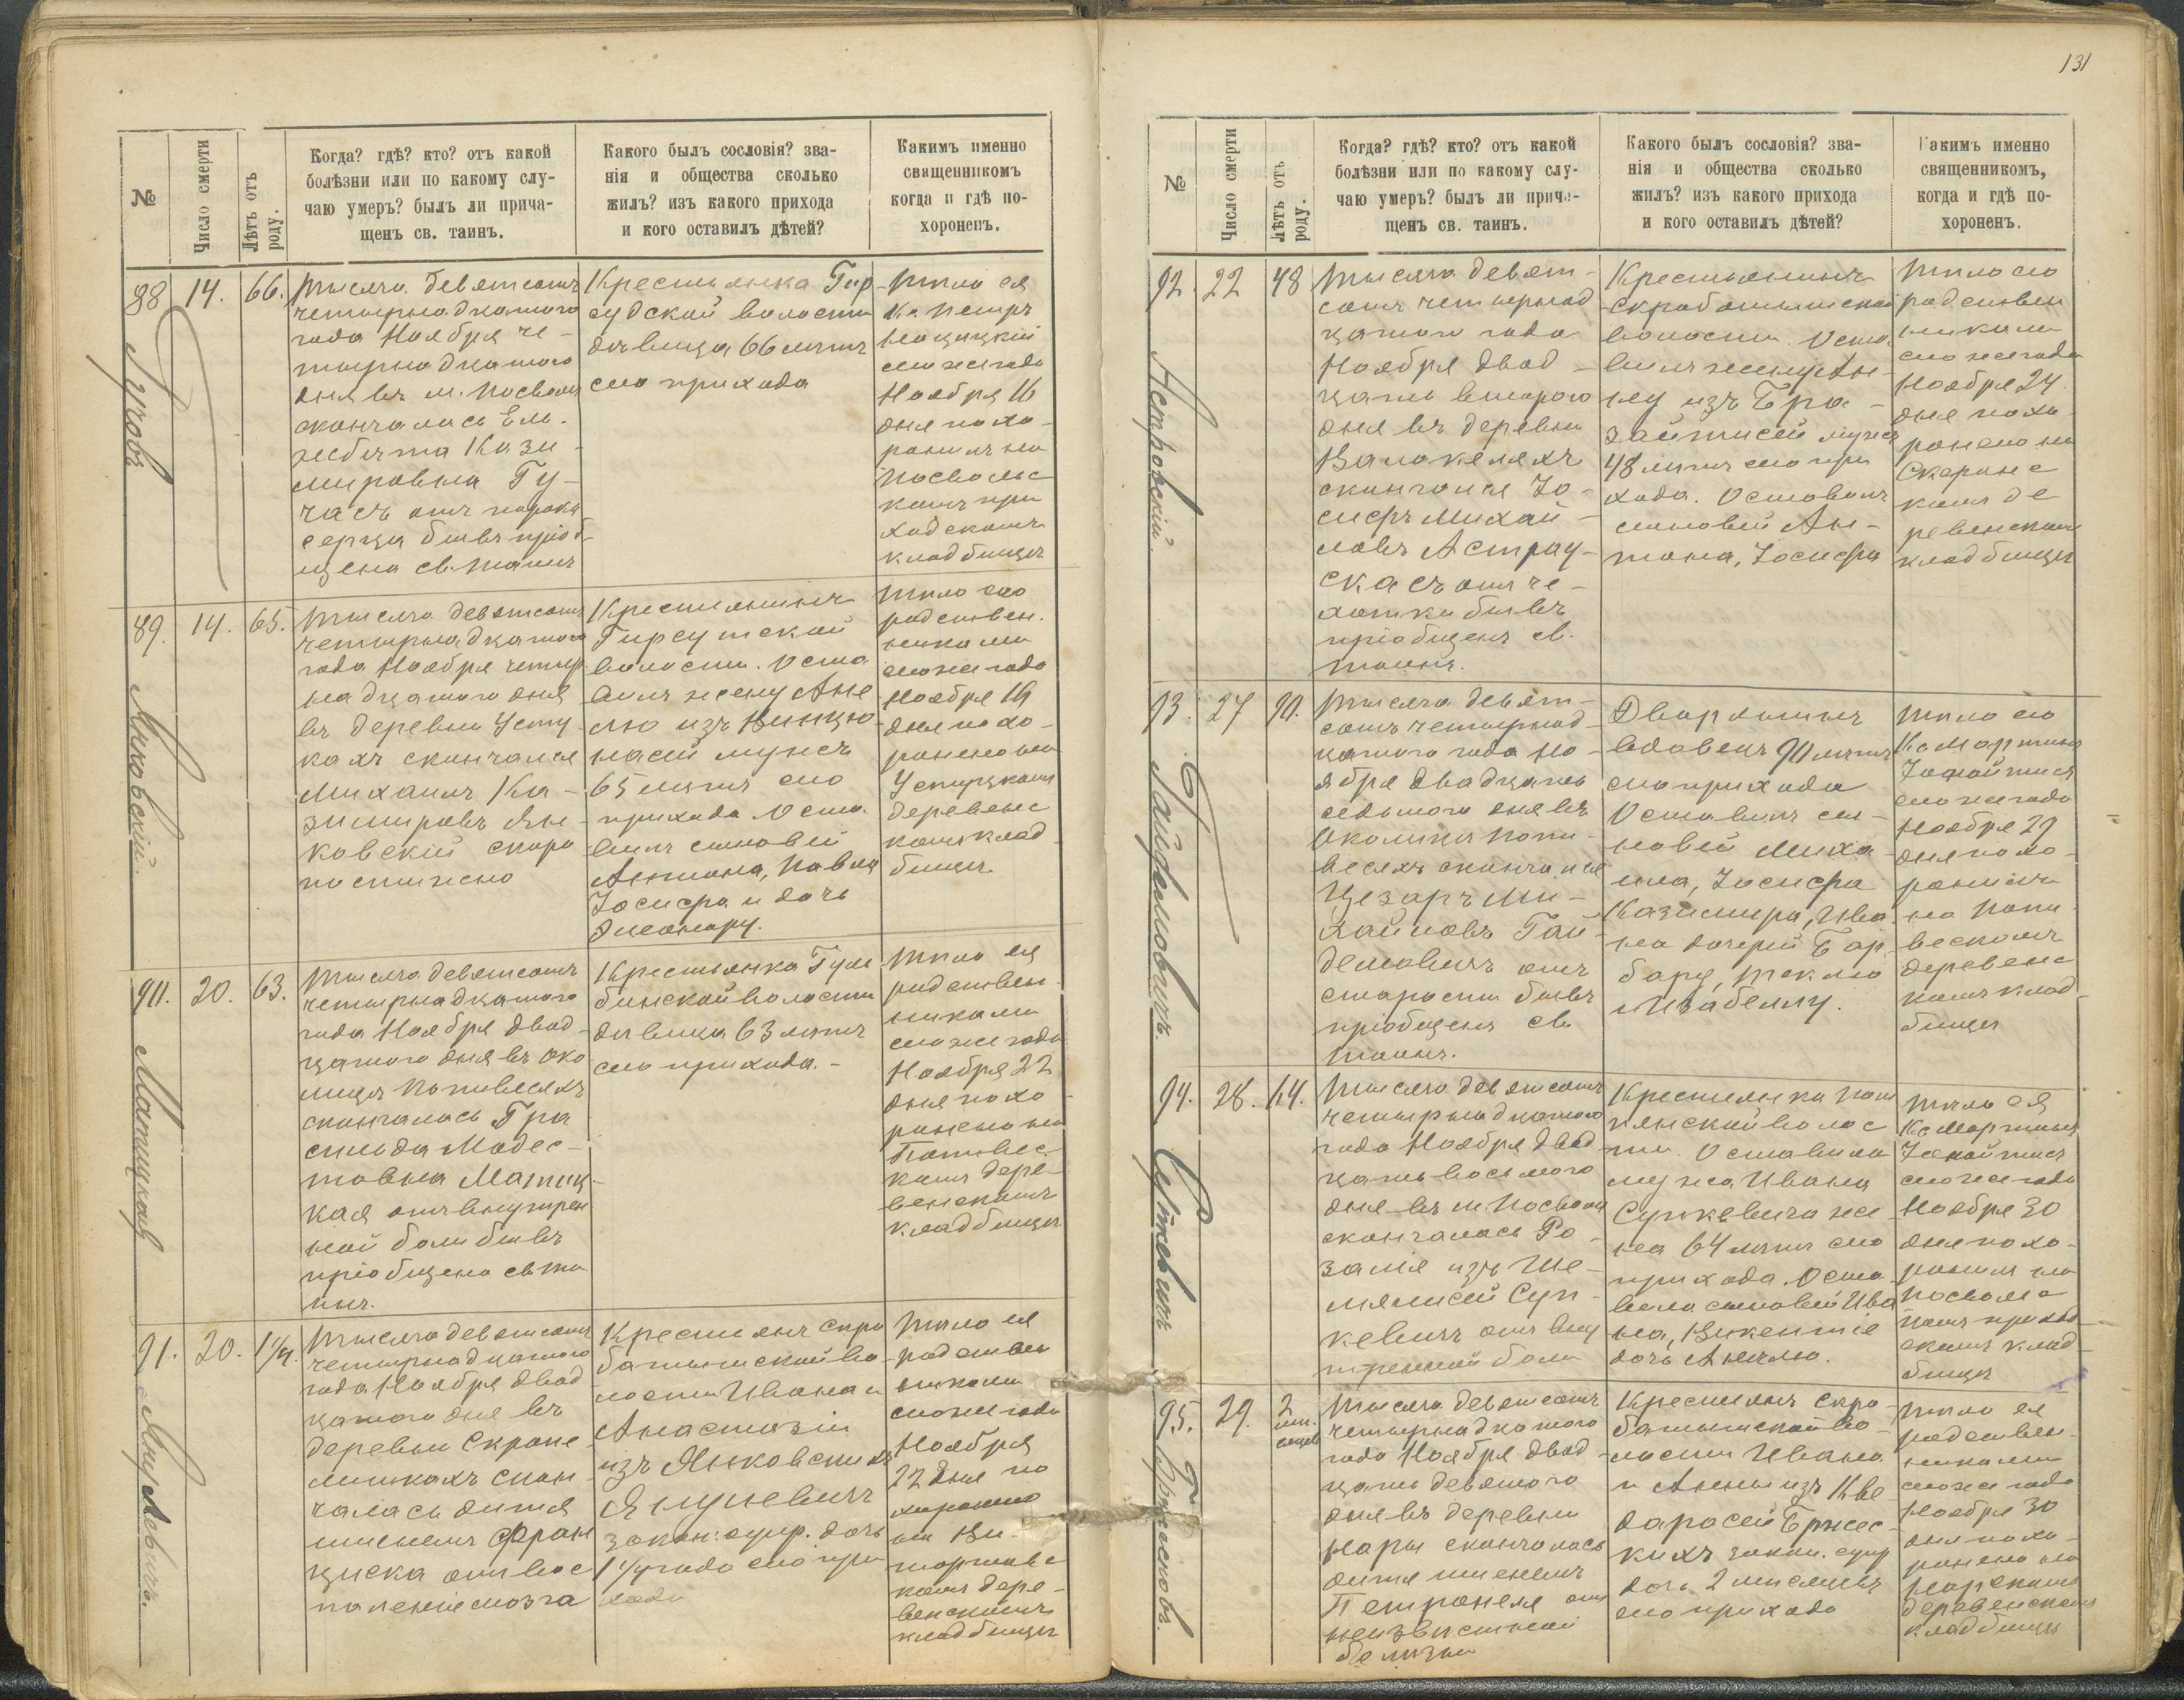 131
№
Число смерти
Лѣтъ отъ роду.
Когда? гдѣ? кто? отъ какой
болѣзни или по какому слу-
чаю умеръ? былъ ли прича-
щенъ св. таинъ.
Какого былъ сословія? зва-
нія и общества сколько
жилъ? изъ какого прихода
и кого оставилъ дѣтей?
Какимъ именно
священникомъ
когда и гдѣ по-
хороненъ.
88
14.
66.
Тысяча девятсотъ
четырнадцатого
года Ноября че-
тырнадцатого
дня въ м. Посволи
скончалась Ель-
жбѣта Кази-
мировна Гу-
часъ отъ порока
серца бывъ пріоб-
щена св. таинъ
Крестьянка Гир-
судской волости
дѣвица 66 лѣтъ
сего прихода
Тѣло ея
Кс. Петръ
сего же года
Ноября 16
дня похо-
ронилъ на
Посвольс-
комъ при-
ходскомъ
кладбищѣ
89.
14.
65.
Янковскій
Тысяча девятсотъ
четырнадцатого
года Ноября четыр-
надцатого дня
въ деревни Усту-
кахъ скончался
Михаилъ Ка-
зимировъ Ян-
ковскій скоро-
постижно
Крестьянинъ
Гирсутской
волости. Оста-
вилъ жену Ане-
лю изъ
мужъ
65 лѣтъ сего
прихода. Оста-
вилъ сыновей
Антона, Павла
Іосифа и дочь
Элеонору.
Тѣло его
родствен-
никами
сего же года
Ноября 16
дня похо-
ронено на
Устукскомъ
деревенс-
комъ клад-
бищѣ
90.
20.
63.
Матицкая
Тысяча девятсотъ
четырнадцатого
года Ноября двад-
цатого дня въ око-
лицѣ Попивесяхъ
скончалась Гра-
сильда Модес-
товна Матиц-
кая отъ внутрен-
ной боли бывъ
пріобщена св. та-
инъ.
Крестьянка Гум-
бинской волости
дѣвица 63 лѣтъ
сего прихода.-
Тѣло ея
родствен-
никами
сего же года
Ноября 22
дня похо-
ронено на
Попивес-
комъ дере-
венскомъ
кладбищѣ
91.
20.
1 1/4.
Янулевичъ.
Тысяча девятсотъ
четырнадцатого
года Ноября двад-
цатого дня въ
деревни
скон-
чалась дитя
именемъ Фран-
циска отъ вос-
паленіе мозга
Крестьянъ Скро-
батишской во-
лости Ивана и
Анастазіи
изъ Янковскихъ
Янулевичъ
закон: супр. дочь
1 1/4 года сего при-
хода
Тѣло ея
родствен-
никами
сего же года
Ноября
22 дня по-
хоронено
на
комъ дере-
венскомъ
кладбищѣ
№
Число смерти
Лѣтъ отъ роду.
Когда? гдѣ? кто? отъ какой
болѣзни или по какому слу-
чаю умеръ? былъ ли прича-
щенъ св. таинъ.
Какого былъ сословія? зва-
нія и общества сколько
жилъ? изъ какого прихода
и кого оставилъ дѣтей?
Какимъ именно
священникомъ,
когда и гдѣ по-
хороненъ.
92.
22
48
Астровскій.
Тысяча девят-
сотъ четырнад-
цатого года
Ноября двад-
цать второго
дня въ деревни
Валакеляхъ
скончался Іо-
сифъ Михай-
ловъ Астрау-
скасъ отъ че-
хотки бывъ
пріобщенъ св.
таинъ.
Крестьянинъ
Скробатишской
волости. Оста-
вилъ жену Ан-
ну изъ Бра-
зайтисей мужъ
48 лѣтъ сего при-
хода. Оставилъ
сыновей Ан-
тона, Іосифа
Тѣло его
родствен-
никами
сего же года
Ноября 24
дня похо-
ронено на
комъ де-
ревенскомъ
кладбищѣ
93.
27
90.
Гайдемовичъ.
Тысяча девят-
сотъ четырнад-
цатого года Но-
ября двадцать
седьмого дня въ
околицѣ Попи-
весяхъ скончался
Цезаръ Ми-
хайловъ Гай-
демовичъ отъ
старости бывъ
пріобщенъ св.
таинъ.
Дворянинъ
вдовецъ 90 лѣтъ
сего прихода
Оставилъ сы-
новей Миха-
ила, Іосифа
Казимира, Ива-
на дочерей Бар-
бару, Теклю
и Изабеллу.
Тѣло его
Кс Мартинъ
сего же года
Ноября 29
дня похо-
ронилъ
на Попи-
вескомъ
деревенс-
комъ клад-
бищѣ
94.
28.
64.
Суткевичъ
Тысяча девятсотъ
четырнадцатого
года Ноября двад-
цать восьмого
дня въ м. Посволи
скончалась Ро-
залія изъ Ше-
млисей Сут-
кевичъ отъ вну-
тренной боли
волос-
ти. Оставила
мужа Ивана
Суткевича же-
на 64 лѣтъ сего
прихода. Оста-
вила сыновей Ива-
на, Викентіе
дочь Анелю.
Тѣло ея
Кс Мартинъ
сего же года
Ноября 30
дня похо-
ронилъ на
Посвольс-
комъ приход-
скомъ клад-
бищѣ
95.
29.
2
мѣ-
сяцевъ
Тысяча девятсотъ
четырнадцатого
года Ноября двад-
цать девятого
дня въ деревни
Нары скончалась
дитя именемъ
Петронеля отъ
неизвѣстной
болѣзни
Крестьянъ Скро-
батишской во-
лости Ивана
и Анны изъ Кве-
дарасей Бржес-
кихъ закон. супр
дочь 2 мѣсяцевъ
сего прихода
Тѣло ея
родствен-
никами
сего же года
Ноября 30
дня похо-
ронено на
Нарскомъ
деревенскомъ
кладбищѣ